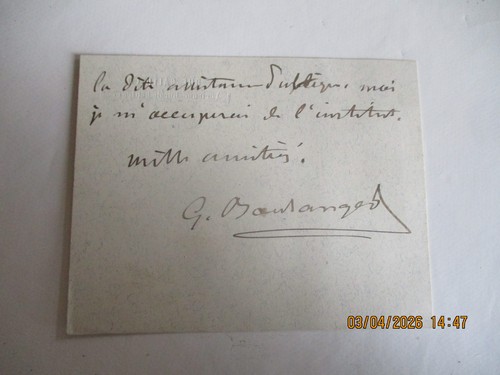 la dite assistance publique, mais
je m'occuperai de l'institut.
mille amitiés.
G. Boulanger
03/04/2026 14:47